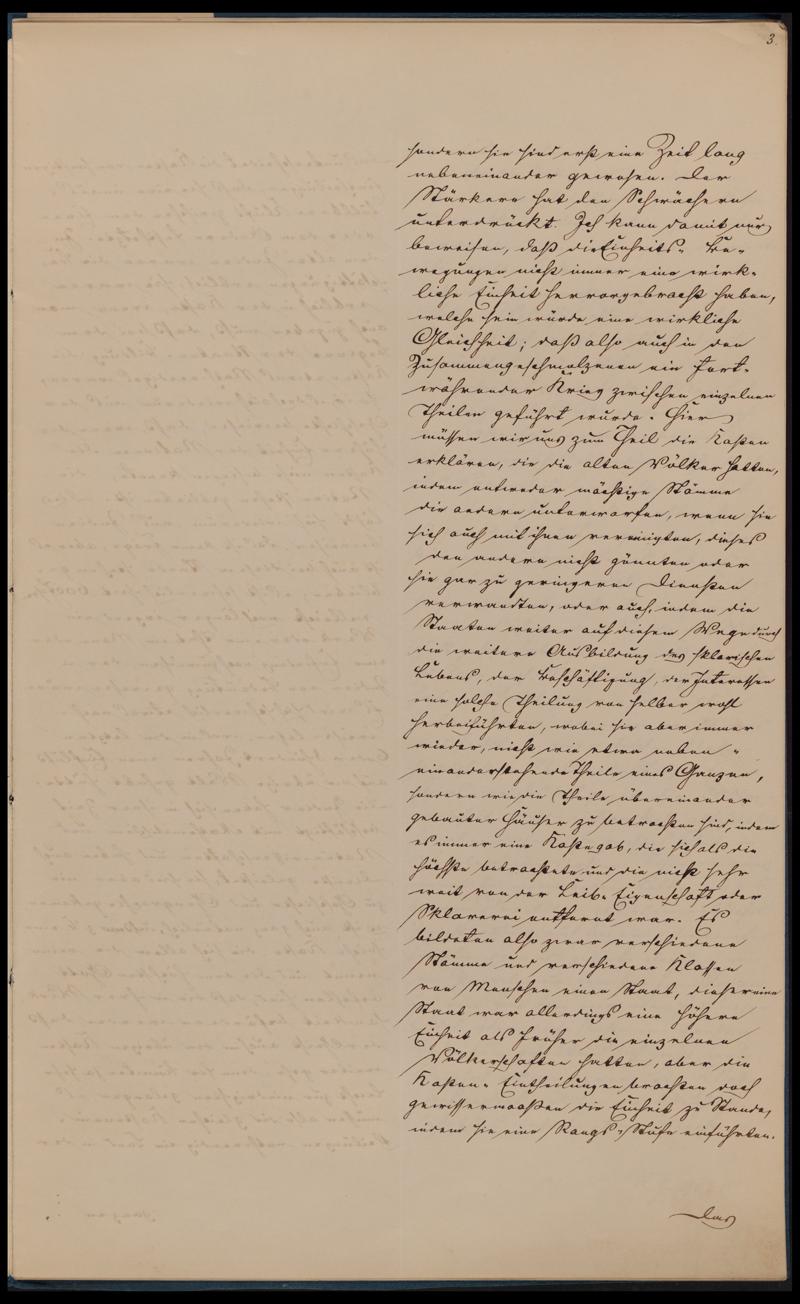 3.
sondern sie sind erst eine Zeit lang
nebeneinander gewesen. Der
Stärkere hat den Schwächern
unterdrückt. Ich kann damit nur
beweisen, daß die Einheits- Be-
wegungen nicht immer eine wirk-
liche Einheit hervorgebracht haben,
welche sein würde eine wirkliche
Gleichheit; daß also auch in den
Zusammengeschmolzenen ein fort-
währender Krieg zwischen einzelnen
Theilen geführt wurde. Hier
müssen wir uns zum Theil die Kasten
erklären, die die alten Völker hatten,
indem entweder mächtige Stämme
die andern unterwarfen, wenn sie
sich auch mit ihnen vereinigten, dieses
den andern nicht gönnten oder
sie gar zu geringeren Diensten
verwandten, oder auch, indem die
Staaten weiter auf diesem Wege durch
die weitere Ausbildung des sklavischen
Lebens, der Beschäftigung, der Interessen
eine solche Theilung von selber wohl
herbeiführten, wobei sie aber immer
wieder, nicht wie etwa neben-
einanderstehende Theile eines Ganzen,
sondern wie die Theile übereinander
gebauter Häuser zu betrachten sind, indem
es immer eine Kaste gab, die sich als die
höchste betrachtete und die nicht sehr
weit von der Leib- Eigenschaft oder
Sklaverei entfernt war. Es
bildeten also zwar verschiedene
Stämme und verschiedene Klassen
von Menschen einen Staat, dieser eine
Staat war allerdings eine höhere
Einheit als früher die einzelnen
Völkerschaften hatten, aber die
Kasten- Eintheilungen brachten doch
gewissermaaßen die Einheit zu Stande,
indem sie eine Rangs-Stufe einführten.
Das